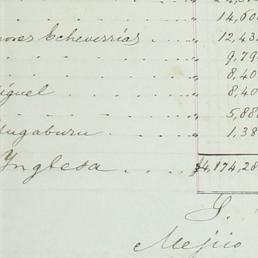 14,60
nores Echeverrias . . . 12,43
9,79
8,40
iguel . . . . . . . 8,40
5,88
Mugaburu . . . . 1,38
Ynglesa . . . $4,174,28
S.
Mejico